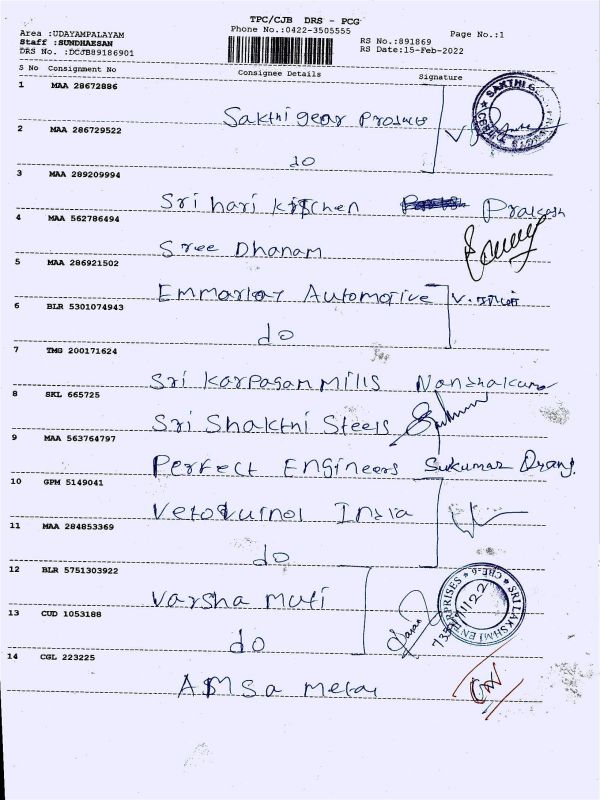 TPC/CJB DRS - PCG
Area :UDAYAMPALAYAM
Phone No.:0422-3505555
Page No.:1
Staff :SUNDHAESAN
RS No.:891869
DRS No. :DCJB89186901
RS Date:15-Feb-2022
S No Consignment No Consignee Details Signature
1 MAA 28672886
Sakthi gear Products
2 MAA 286729522
do
3 MAA 289209994
Sri hari kitchen Prakash
4 MAA 562786494
Sree Dhanam
5 MAA 286921502
Emmarlay Automotive V.
6 BLR 5301074943
do
7 TMG 200171624
Sri Karpagam Mills Nandhakumar
8 SKL 665725
Sri Shakthi Steels
9 MAA 563764797
Perfect Engineers Sukumar
10 GPM 5149041
India
11 MAA 284853369
do
12 BLR 5751303922
Varsha Muti
SRI LAKSHMI ENTERPRISES CBE-6
13 CUD 1053188
do
14 CGL 223225
AMSa Metal